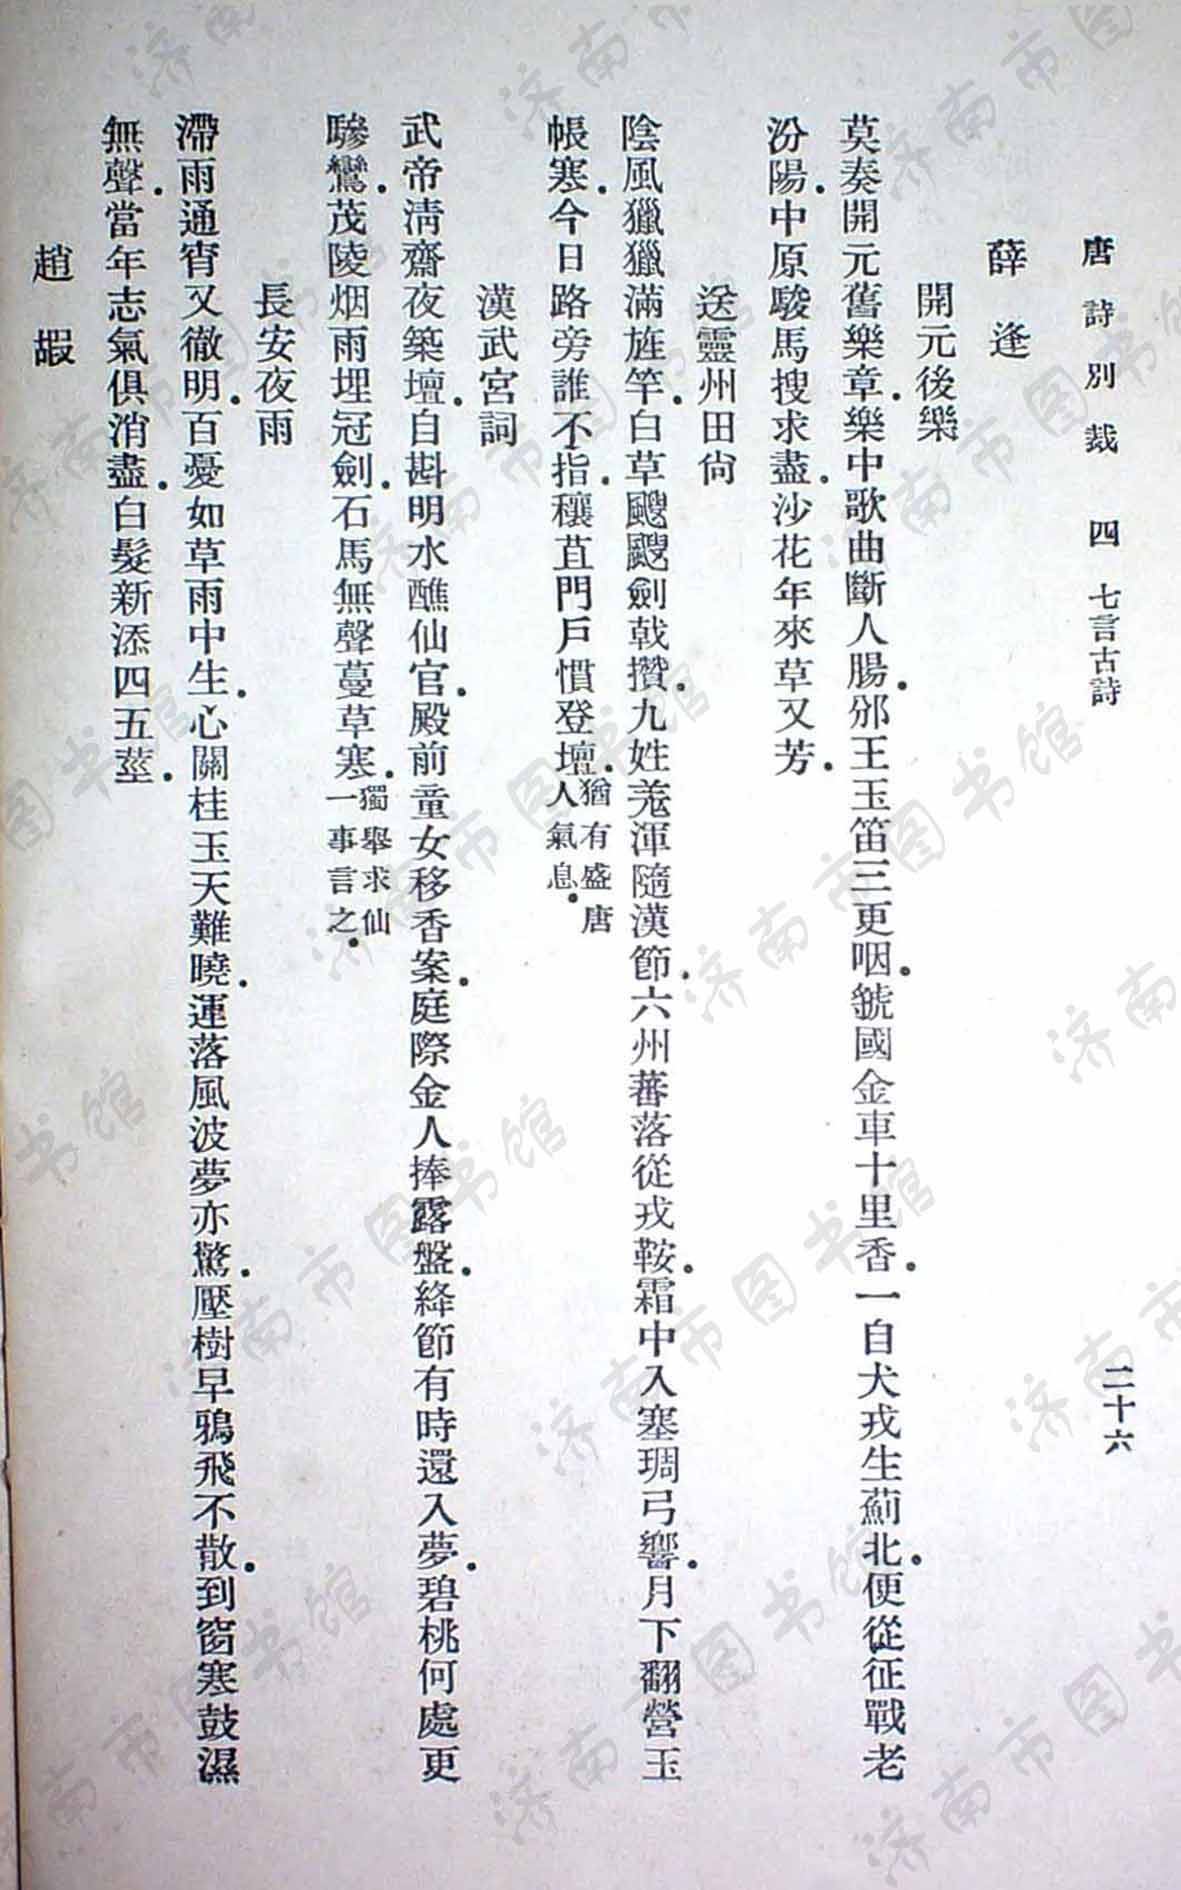 唐詩別裁 四 七言古詩 二十六
薛逢
開元後樂
莫奏開元舊樂章.樂中歌曲斷人腸.邠王玉笛三更咽.虢國金車十里香.一自犬戎生薊北.便從征戰老
汾陽.中原駿馬搜求盡.沙花年來草又芳.
送靈州田尙
陰風獵獵滿旌竿.白草颼颼劍戟攢.九姓羗渾隨漢節.六州蕃落從戎鞍.霜中入塞琱弓響.月下翻營玉
帳寒.今日路旁誰不指.穰苴門戶慣登壇.猶有盛唐人氣息.
漢武宮詞
武帝淸齋夜築壇.自斟明水醮仙官.殿前童女移香案.庭際金人捧露盤.絳節有時還入夢.碧桃何處更
驂鸞.茂陵烟雨埋冠劍.石馬無聲蔓草寒.獨舉求仙一事言之.
長安夜雨
滯雨通宵又徹明.百憂如草雨中生.心關桂玉天難曉.運落風波夢亦驚.壓樹早鴉飛不散.到窗寒鼓濕
無聲.當年志氣俱消盡.白髮新添四五莖.
趙嘏